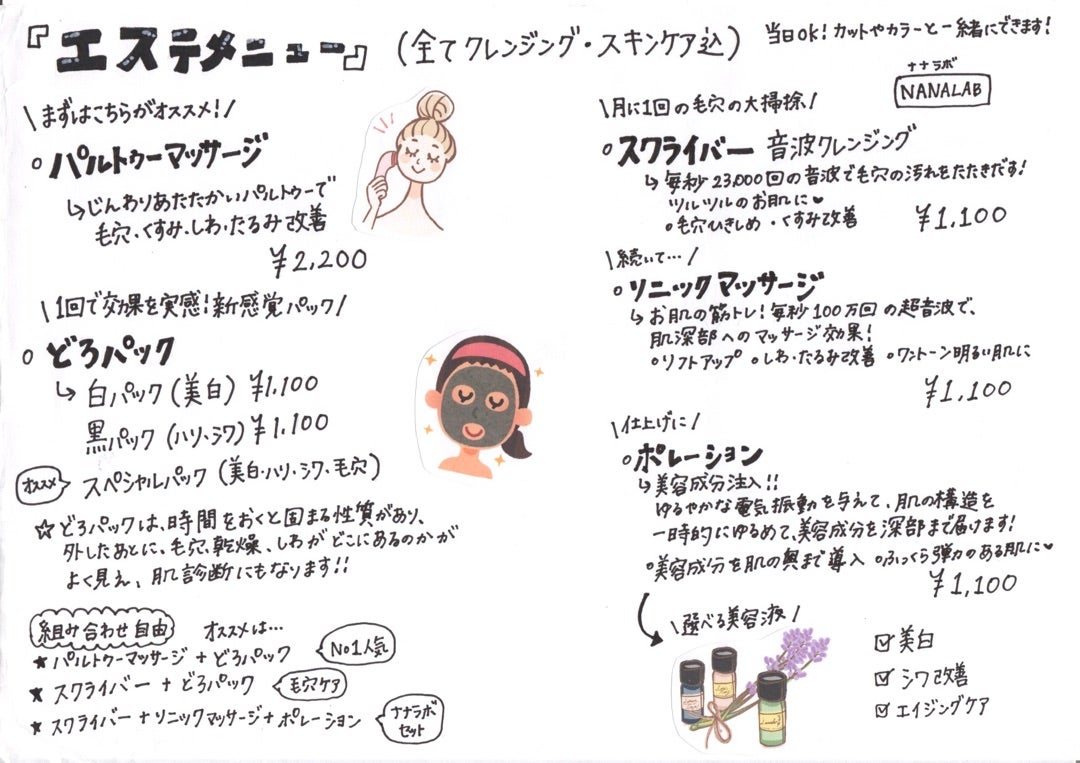 『エステメニュー』(全てクレンジング・スキンケア込)
当日OK!カットやカラーと一緒にできます!
\まずはこちらがオススメ!/
○パルトゥーマッサージ
↳じんわりあたたかいパルトゥーで
毛穴・くすみ・しわ・たるみ改善
¥2,200
\1回で効果を実感!新感覚パック/
○どろパック
↳白パック(美白) ¥1,100
黒パック(ハリ・シワ) ¥1,100
オススメ スペシャルパック(美白・ハリ・シワ・毛穴)
☆どろパックは、時間をおくと固まる性質があり、
外したあとに、毛穴、乾燥、しわがどこにあるのかが
よく見え、肌診断にもなります!!
組み合わせ自由 オススメは…
★パルトゥーマッサージ+どろパック No1人気
★スクライバー+どろパック 毛穴ケア
★スクライバー+ソニックマッサージ+ポレーション ナナラボ
セット
ナナラボ
NANALAB
\月に1回の毛穴の大掃除/
○スクライバー 音波クレンジング
↳毎秒23,000回の音波で毛穴の汚れをたたきだす!
ツルツルのお肌に♥
•毛穴ひきしめ •くすみ改善 ¥1,100
\続いて…/
○ソニックマッサージ
↳お肌の筋トレ!毎秒100万回の超音波で、
肌深部へのマッサージ効果!
○リフトアップ ○しわ・たるみ改善 ○ワントーン明るい肌に
¥1,100
\仕上げに/
○ポレーション
↳美容成分注入!!
ゆるやかな電気振動を与えて、肌の構造を
一時的にゆるめて、美容成分を深部まで届けます!
•美容成分を肌の奥まで導入 ○ふっくら弾力のある肌に♥
¥1,100
\選べる美容液/
☑美白
☑シワ改善
☑エイジングケア